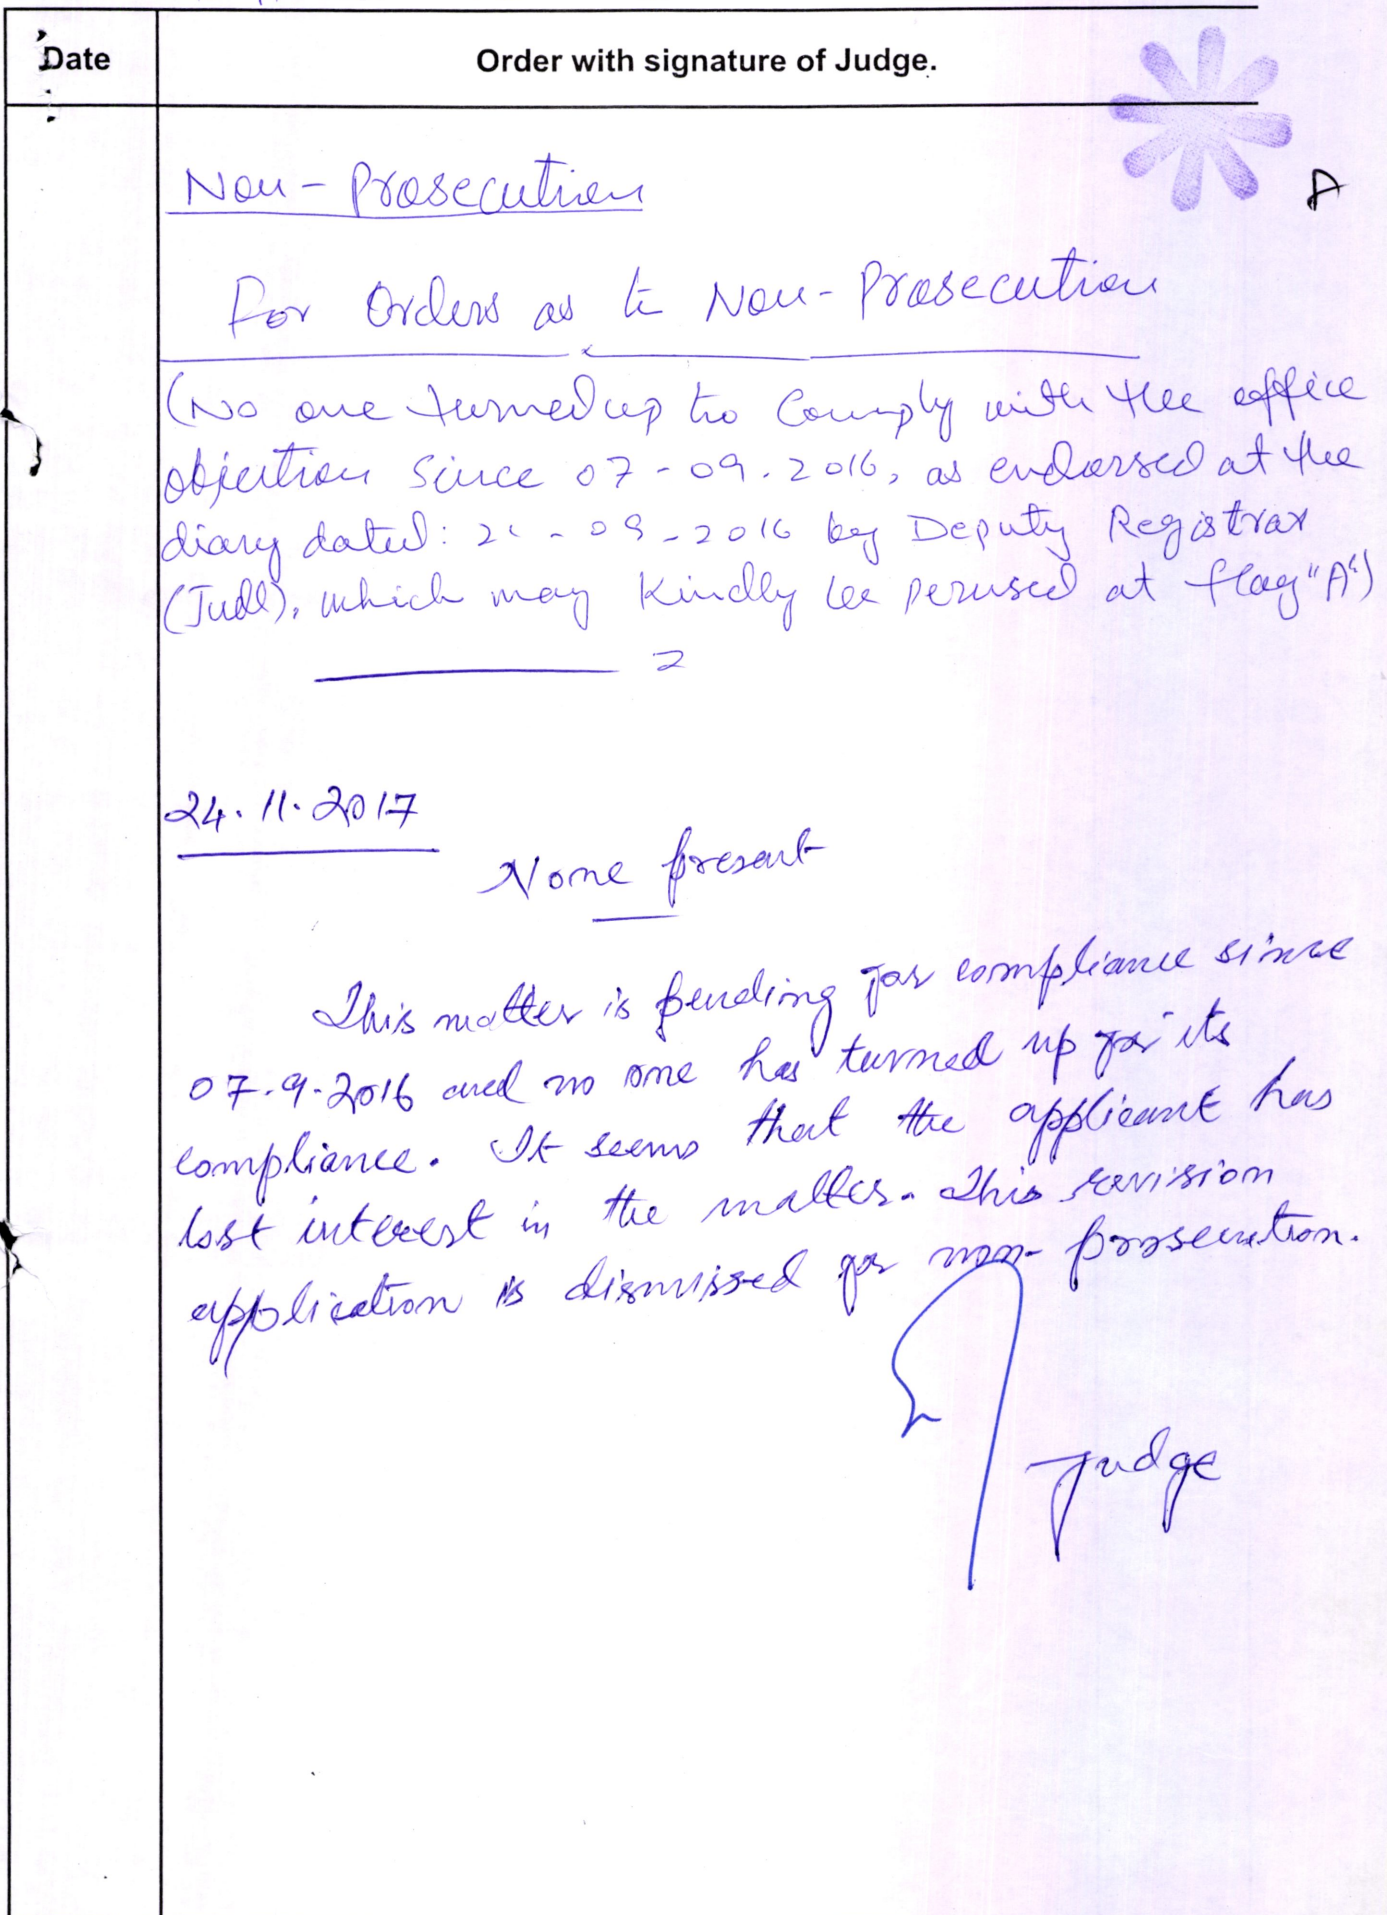 Date
Order with signature of Judge.
A
Non-Prosecution
For Orders as to Non-Prosecution
(No one turned up to Comply with the office
objection since 07-09.2016, as endorsed at the
diary dated: -09-2016 by Deputy Registrar
(Judl), which may Kindly be perused at flag "A")
24.11.2017
None present
This matter is pending for compliance since
07.9.2016 and no one has turned up for its
compliance. It seems that the applicant has
lost interest in the matter. This revision
application is dismissed for non-prosecution.
Judge